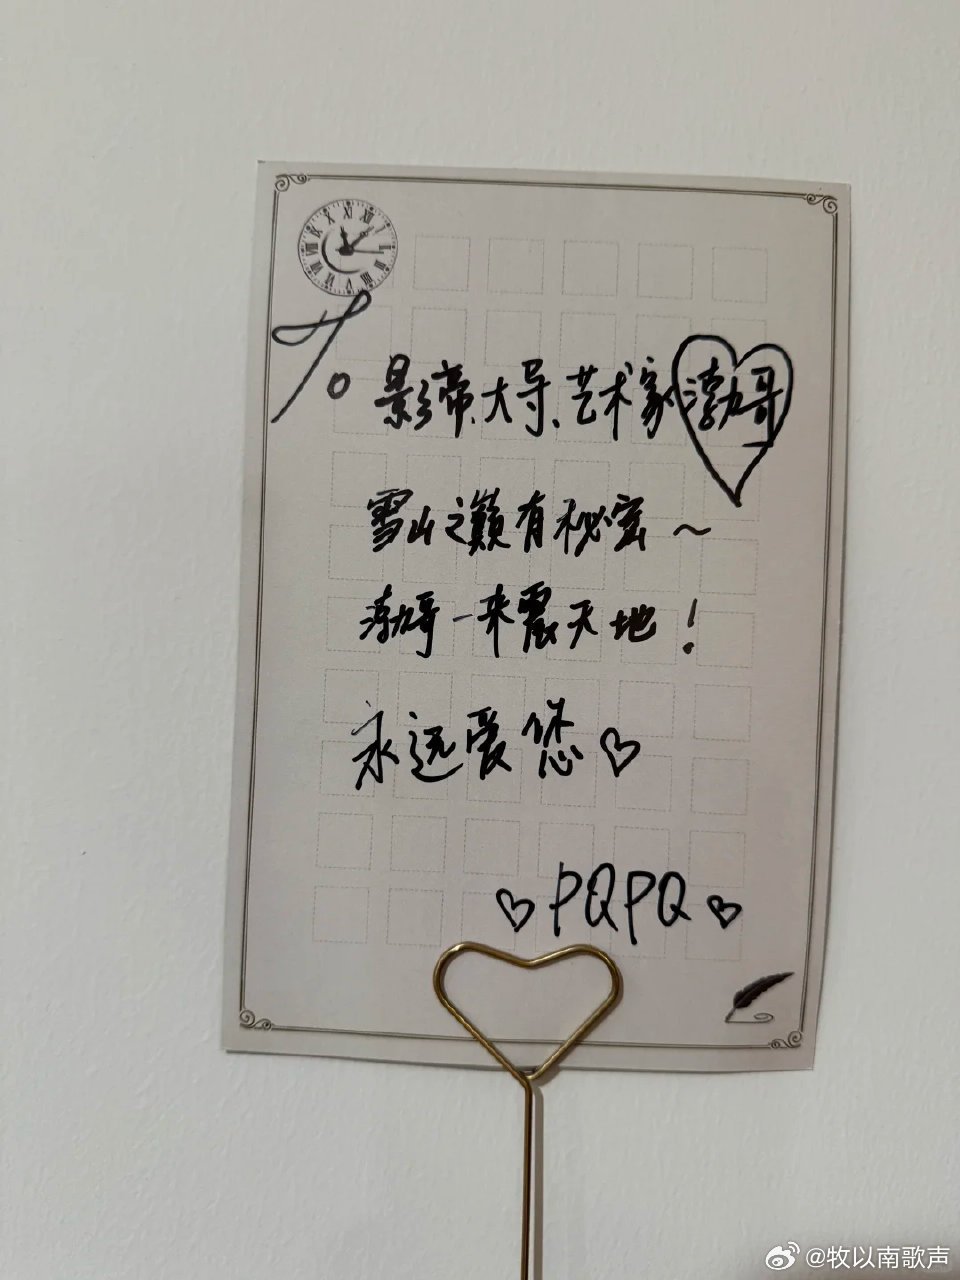 To 影帝、大导、艺术家渤哥
雪山之巅有秘密～
渤哥一来震天地！
永远爱您♡
♡PQPQ♡
@牧以南歌声